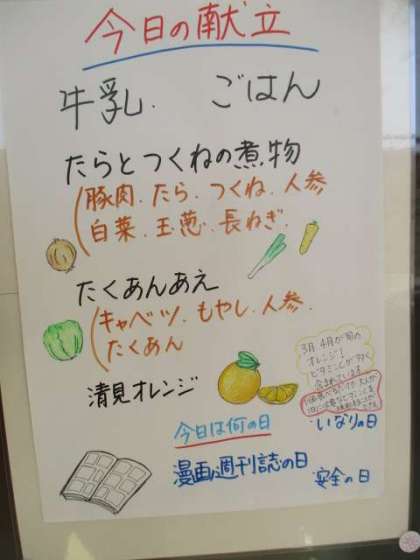 今日の献立
牛乳. ごはん
たらとつくねの煮物
(豚肉.たら.つくね.人参
白菜.玉葱.長ねぎ.
たくあんあえ
(キャベツ.もやし.人参.
たくあん
清見オレンジ
3月4月が旬の
オレンジ!
ビタミンCが多く
含まれています
今日は何の日
・いなりの日
漫画週刊誌の日
安全の日